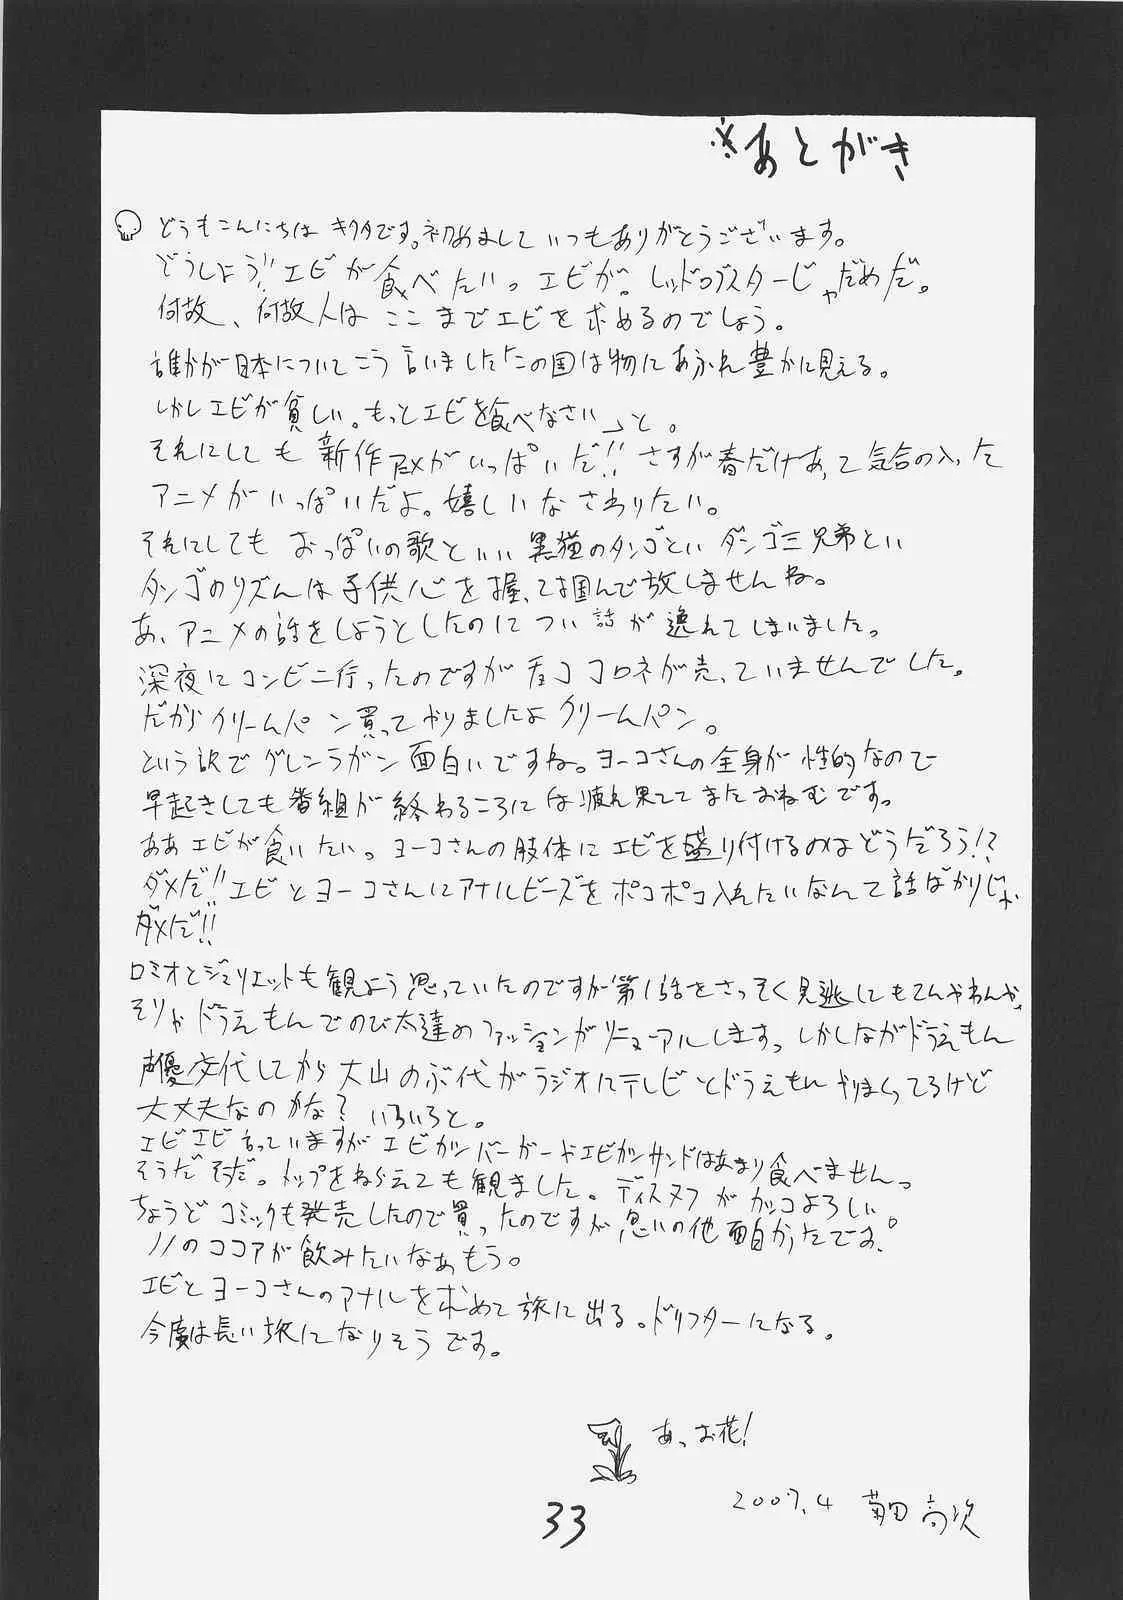 ※あとがき
どうもこんにちは キクタです。初めまして いつもありがとうございます。
どうしよう!! エビが食べたいっ エビが。レッドロブスターじゃだめだ。
何故、何故人は ここまでエビを求めるのでしょう。
誰かが日本についてこう言いました「この国は物にあふれ豊かに見える。
しかしエビが貧しい。もっとエビを食べなさい」と。
それにしても 新作アニメがいっぱいだ!! さすが春だけあって気合の入った
アニメがいっぱいだよ。嬉しいなさわりたい。
それにしても おっぱいの歌といい 黒猫のタンゴといい ダンゴ三兄弟といい
タンゴのリズムは子供心を握っては掴んで放しませんね。
あ、アニメの話をしようとしたのについ話が逸れてしまいました。
深夜にコンビニ行ったのですが チョココロネが売っていませんでした。
だからクリームパン買ってやりましたよクリームパン。
という訳で グレンラガン 面白いですね。ヨーコさんの全身が性的なので
早起きしても番組が終わるころには疲れ果ててまたおねむです。
ああエビが食いたい。ヨーコさんの肢体にエビを盛り付けるのはどうだろう!?
ダメだ!! エビとヨーコさんにアナルビーズをポコポコ入れたいなんて話ばかりじゃ
ダメだ!!
ロミオとジュリエットも観よう思っていたのですが第1話をさっそく見逃してもてんやわんや、
そりゃドラえもんでのび太達のファッションがリニューアルしますっ しかしながらドラえもん
声優交代してから大山のぶ代がラジオにテレビとドラえもんやりまくってるけど
大丈夫なのかな? いろいろと。
エビエビ言っていますが エビカツバーガーやエビカツサンドはあまり食べませんっ
そうだそうだ。トップをねらえても観ました。ディスヌフがカッコよろしい
ちょうどコミックも発売したので買ったのですが、思いの他面白かったです。
ノノのココアが飲みたいなぁもう。
エビとヨーコさんのアナルを求めて旅に出る。ドリフターになる。
今度は長い旅になりそうです。
あっ、お花!
2007.4 菊田 高次
33